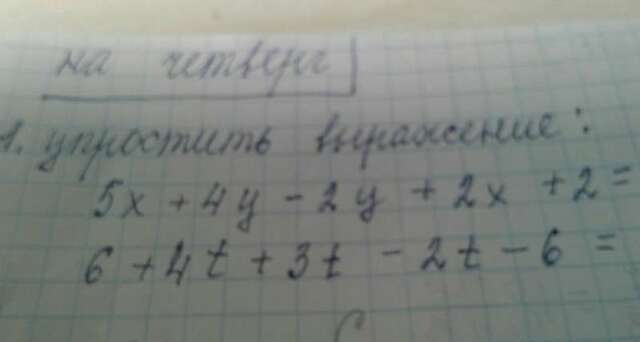 на четверг
1. упростить выражение:
5x + 4y - 2y + 2x + 2 =
6 + 4t + 3t - 2t - 6 =